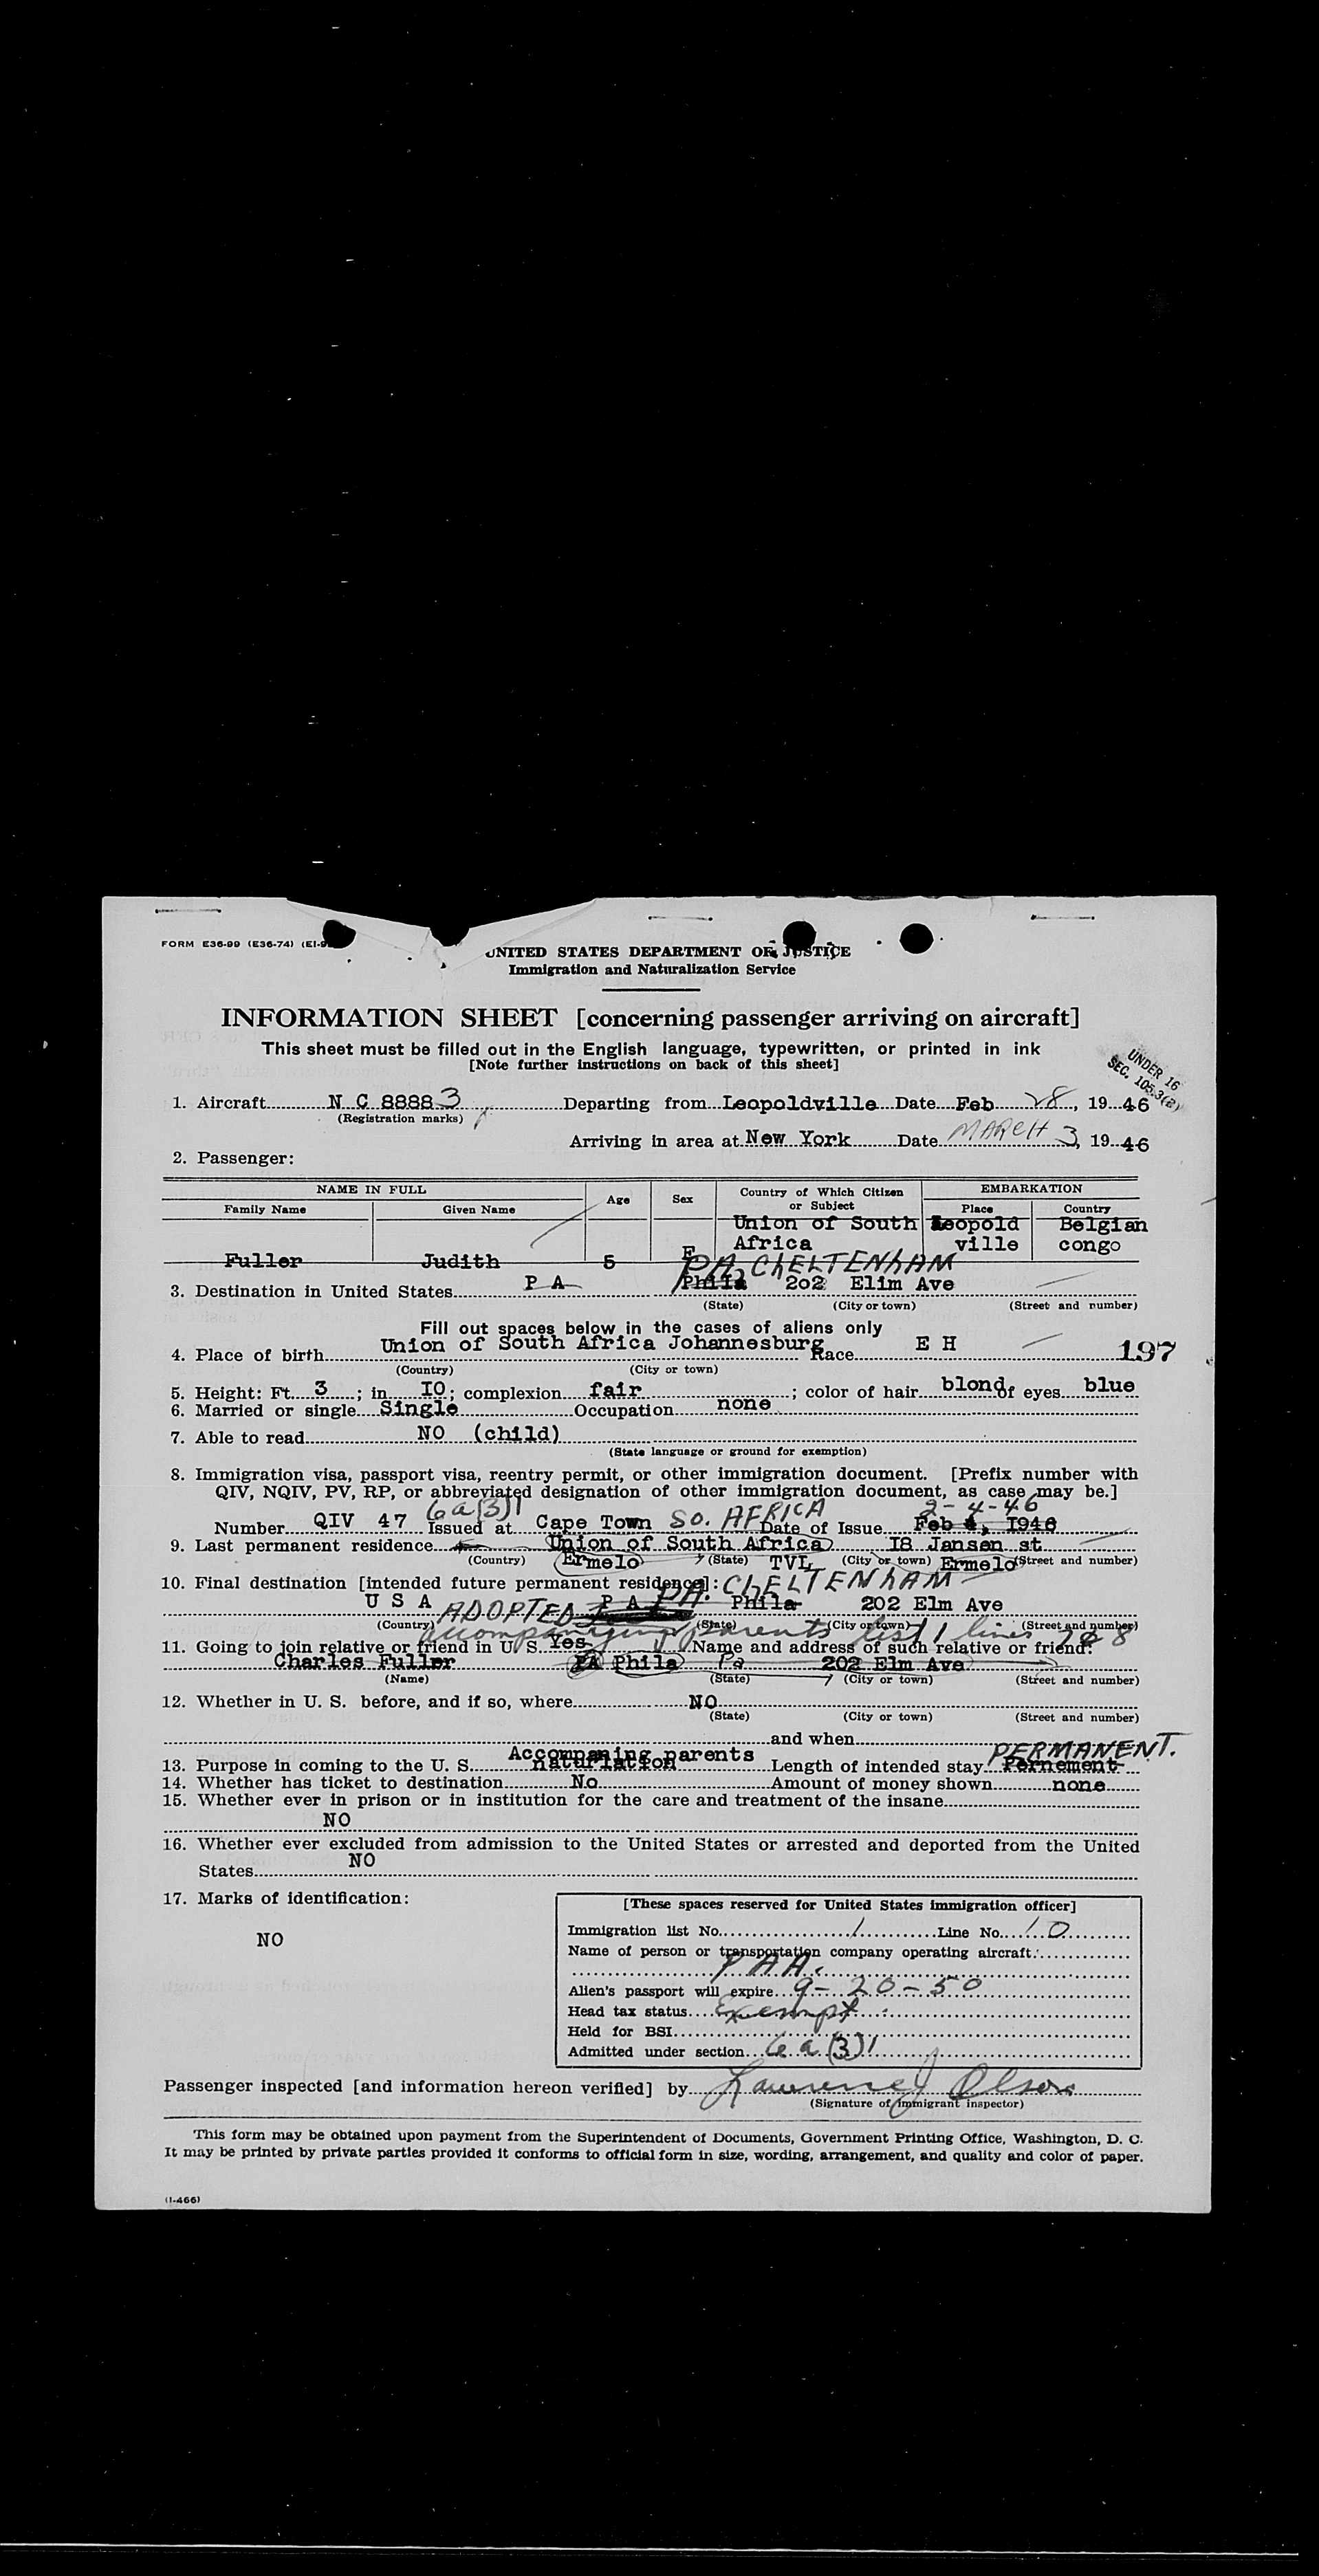 FORM E36-99 (E36-74) (E1-9
UNITED STATES DEPARTMENT OF JUSTICE
Immigration and Naturalization Service
INFORMATION SHEET [concerning passenger arriving on aircraft]
This sheet must be filled out in the English language, typewritten, or printed in ink
[Note further instructions on back of this sheet]
UNDER 16
SEC. 105.3(a)
1. Aircraft N C 88883 Departing from Leopoldville Date Feb 28, 19 46
(Registration marks)
Arriving in area at New York Date MARCH 3, 19 46
2. Passenger:
NAME IN FULL Age Sex Country of Which Citizen or Subject EMBARKATION
Family Name Given Name Place Country
Union of South Leopold Belgian
Africa ville congo
Fuller Judith 5 F
PA, ChELTENhAM
3. Destination in United States P A Phila 202 Elim Ave
(State) (City or town) (Street and number)
Fill out spaces below in the cases of aliens only
4. Place of birth Union of South Africa Johannesburg Race E H 197
(Country) (City or town)
5. Height: Ft. 3; in IO; complexion fair; color of hair blond of eyes blue
6. Married or single Single Occupation none
7. Able to read NO (child)
(State language or ground for exemption)
8. Immigration visa, passport visa, reentry permit, or other immigration document. [Prefix number with
QIV, NQIV, PV, RP, or abbreviated designation of other immigration document, as case may be.]
6a(3)1 2-4-46
Number QIV 47 Issued at Cape Town SO. AFRICA Date of Issue Feb 4, I946
9. Last permanent residence Union of South Africa I8 Jansen st
(Country) Ermelo (State) TVL (City or town) Ermelo (Street and number)
10. Final destination [intended future permanent residence]: PA. ChELTENhAM
U S A P A Phila 202 Elm Ave
(Country) ADOPTED (State) (City or town) (Street and number)
accompanying parents list 1 lines 7&8
11. Going to join relative or friend in U. S. Yes Name and address of such relative or friend:
Charles Fuller PA Phila Pa 202 Elm Ave
(Name) (State) (City or town) (Street and number)
12. Whether in U. S. before, and if so, where NO
(State) (City or town) (Street and number)
and when
Accompaning parents PERMANENT.
13. Purpose in coming to the U. S. Length of intended stay Pernement
14. Whether has ticket to destination No Amount of money shown none
15. Whether ever in prison or in institution for the care and treatment of the insane
NO
16. Whether ever excluded from admission to the United States or arrested and deported from the United
States NO
17. Marks of identification:
NO
[These spaces reserved for United States immigration officer]
Immigration list No. 1 Line No. 10
Name of person or transportation company operating aircraft:
PAA.
Alien's passport will expire 9-20-50
Head tax status Exempt
Held for BSI
Admitted under section 6a(3)1
Passenger inspected [and information hereon verified] by Lawrence J Olson
(Signature of immigrant inspector)
This form may be obtained upon payment from the Superintendent of Documents, Government Printing Office, Washington, D. C.
It may be printed by private parties provided it conforms to official form in size, wording, arrangement, and quality and color of paper.
(1-466)